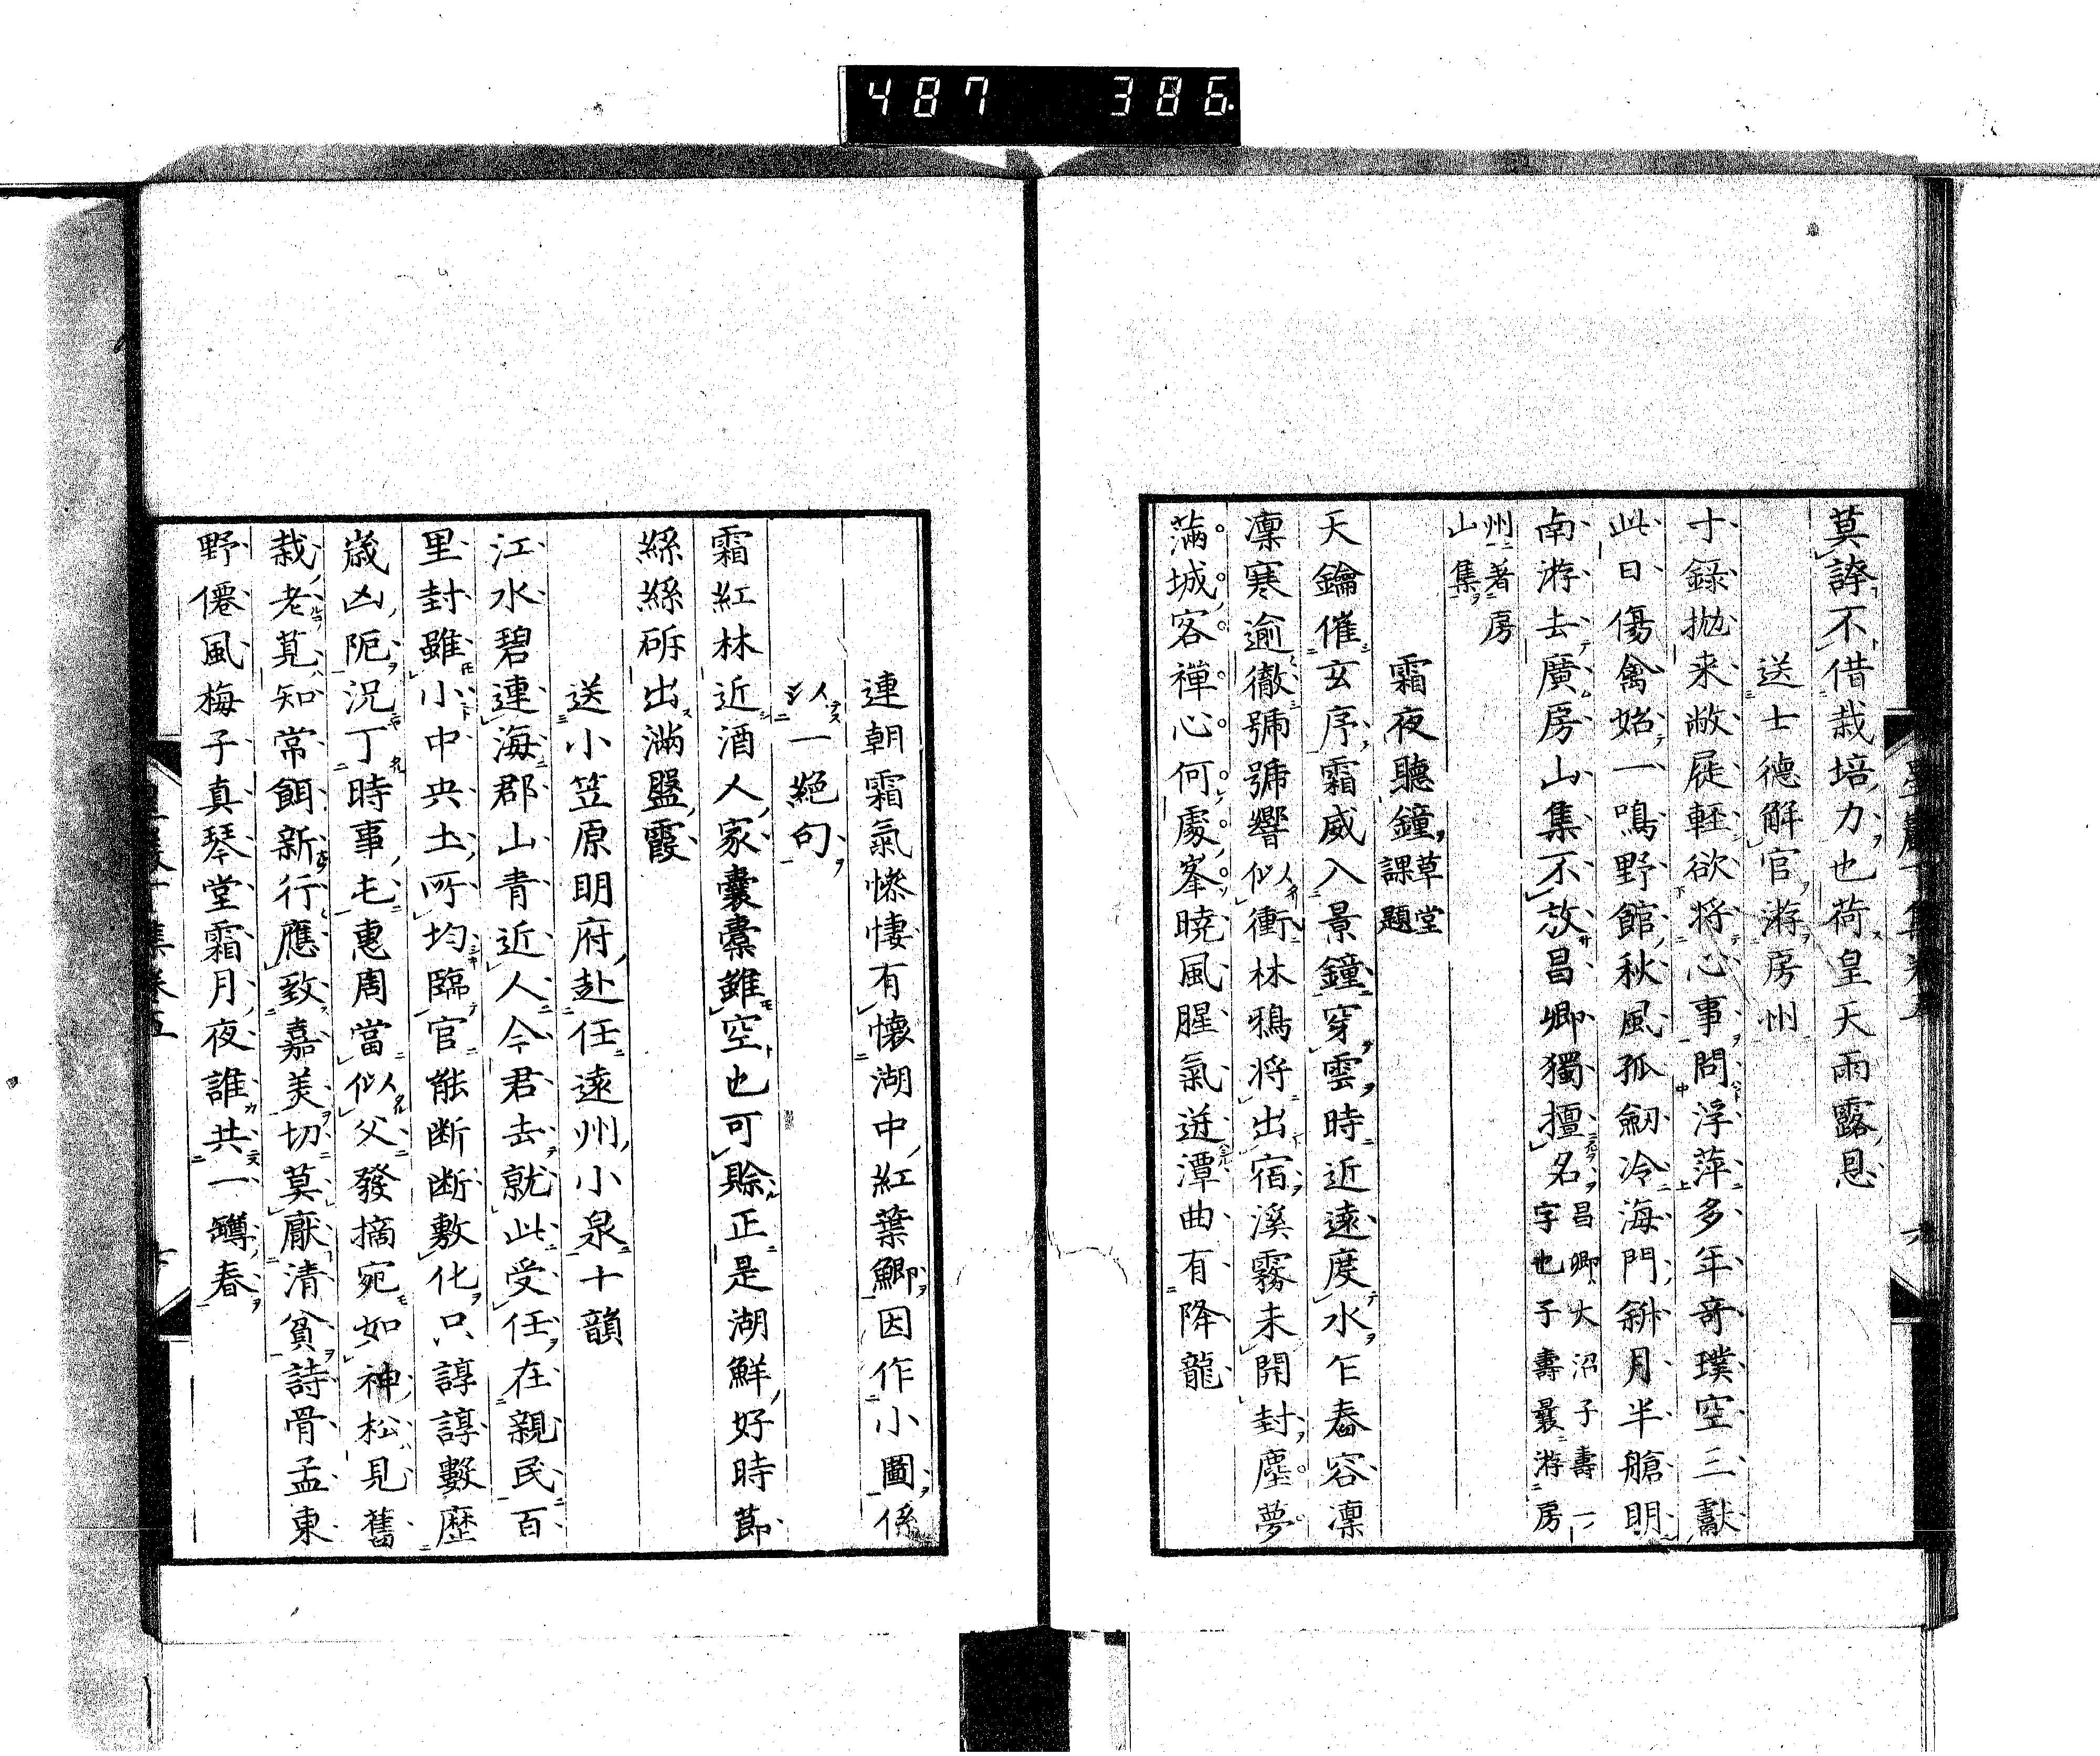 487 386
莫誇不借栽培力也荷皇天雨露恩
送士德解官游房州
十錄拋来敝屣輕欲将心事問浮萍多年奇璞空三獻
此日傷禽始一鳴野館秋風孤劒冷海門斜月半艙明
南游去廣房山集不放昌卿獨擅名昌卿大沼子壽一
字也子壽曩游房
州著房
山集
霜夜聽鐘草堂
課題
天鑰催玄序霜威入景鐘穿雲時近遠度水乍舂容凛
凛寒逾徹號號響似衝林鴉将出宿溪霧未開封塵夢
滿城客禪心何處峯曉風腥氣逬潭曲有降龍
連朝霜氣慘悽有懷湖中紅葉鯽因作小圖係
以一絕句
霜紅林近酒人家囊橐雖空也可賒正是湖鮮好時節
縣縣斫出滿盤霞
送小笠原明府赴任遠州小泉十韻
江水碧連海郡山青近人今君去就此受任在親民百
里封雖小中央土所均臨官能断断敷化只諄諄數歷
歲凶阨況丁時事屯惠周當似父發摘宛如神松見舊
栽老莧知常餌新行應致嘉美切莫厭清貧詩骨孟東
野僊風梅子真琴堂霜月夜誰共一罇春